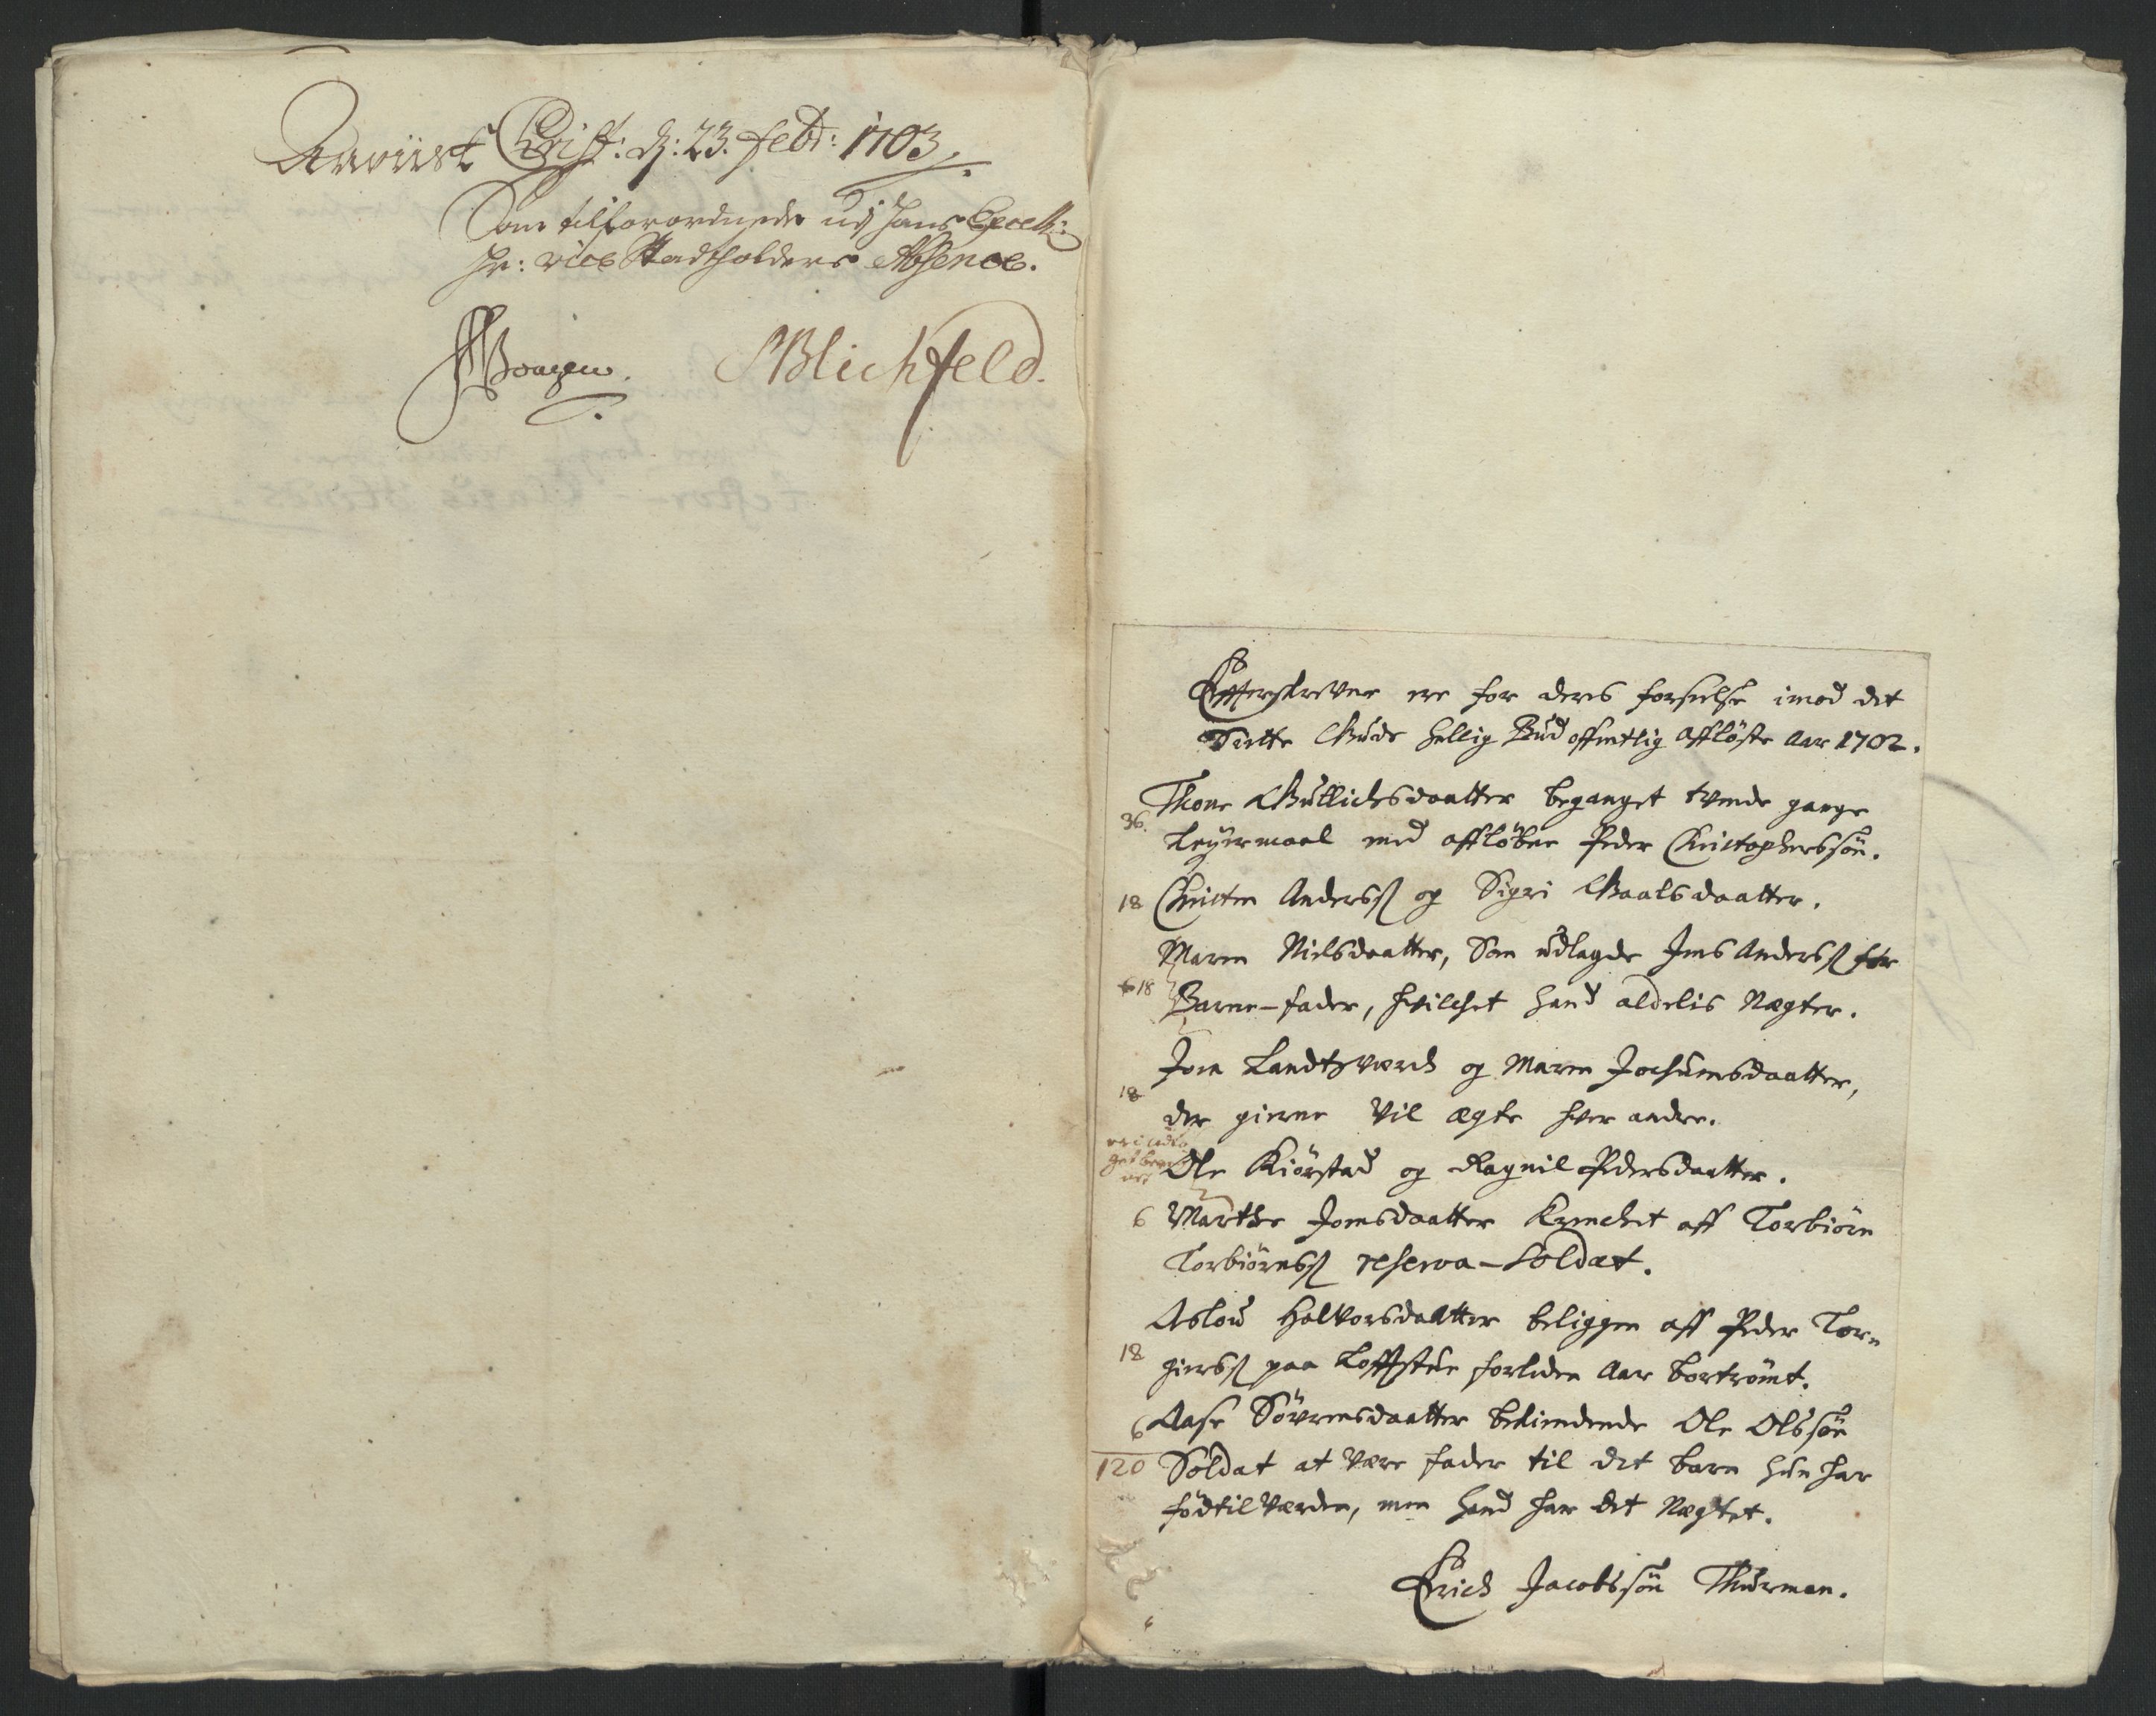 Anviist Christ: d: 23. febr: 1703
Som tilforordnede udj hans Excell:
Hr: vice Stadtholders Absence.
SBlichfeld.
Effterskrevne ere for deres forseelse imod det
Siette Guds hellig Bud offentlig afflöste Aar 1702.
Thone Gullichsdaatter beganget tvende gange
36.
Leyermaal med afflöben Peder Christophersön.
18 Christen Anderss og Sigri Gaalsdaatter.
Maren Nielsdaatter, Som udlagde Jens Anderss for
18 Barne-fader, hvilchet hand aldelis Nægter.
Jon Landtzverch og Maren Jochumsdaatter,
18
der gierne vil ægte hver andre.
Ole Kiörstad og Ragnil Pedersdaatter.
6 Marthe Jonsdaatter Krenchet aff Torbiörn
Torbiörnss reserva-Soldat.
Aslou Halvorsdaatter beliggen aff Peder Tor-
18
gierss paa Loffstue forleden Aar bortrömt.
6 Aase Sövrensdaatter bekiendende Ole Olssön
120 Soldat at være fader til det barn hun har
föd til Værden, men hand har det Nægtet.
Erich Jacobssön Thurman.